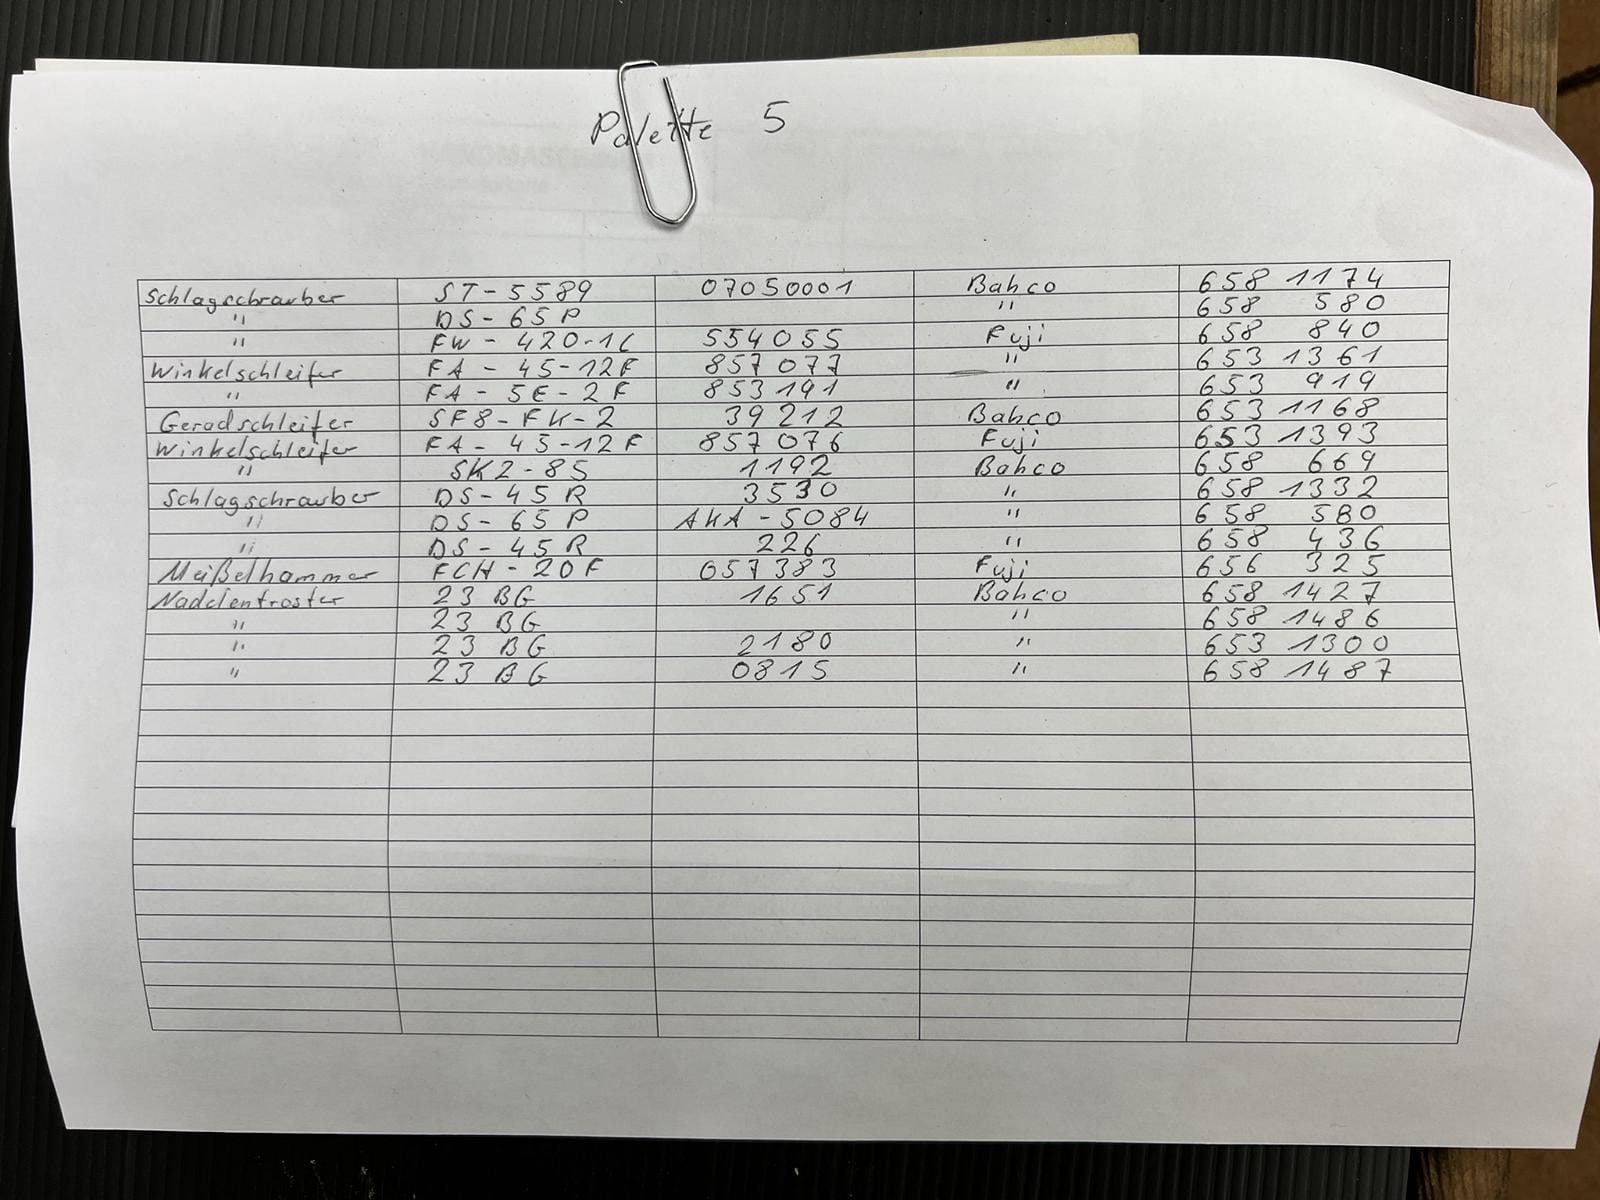 Palette 5
Schlagschrauber ST-5589 07050001 Bahco 658 1174
" DS-65P " 658 580
" FW-420-1L 554055 Fuji 658 840
Winkelschleifer FA-45-12F 857077 " 653 1361
" FA-5E-2F 853191 " 653 919
Geradschleifer SF8-FK-2 39212 Bahco 653 1168
Winkelschleifer FA-45-12F 857076 Fuji 653 1393
" SK2-8S 1192 Bahco 658 669
Schlagschrauber DS-45R 3530 " 658 1332
" DS-65P AHA-5084 " 658 580
" DS-45R 226 " 658 436
Meißelhammer FCH-20F 057383 Fuji 656 325
Nadelentroster 23 BG 1651 Bahco 658 1427
" 23 BG " 658 1486
" 23 BG 2180 " 653 1300
" 23 BG 0815 " 658 1487